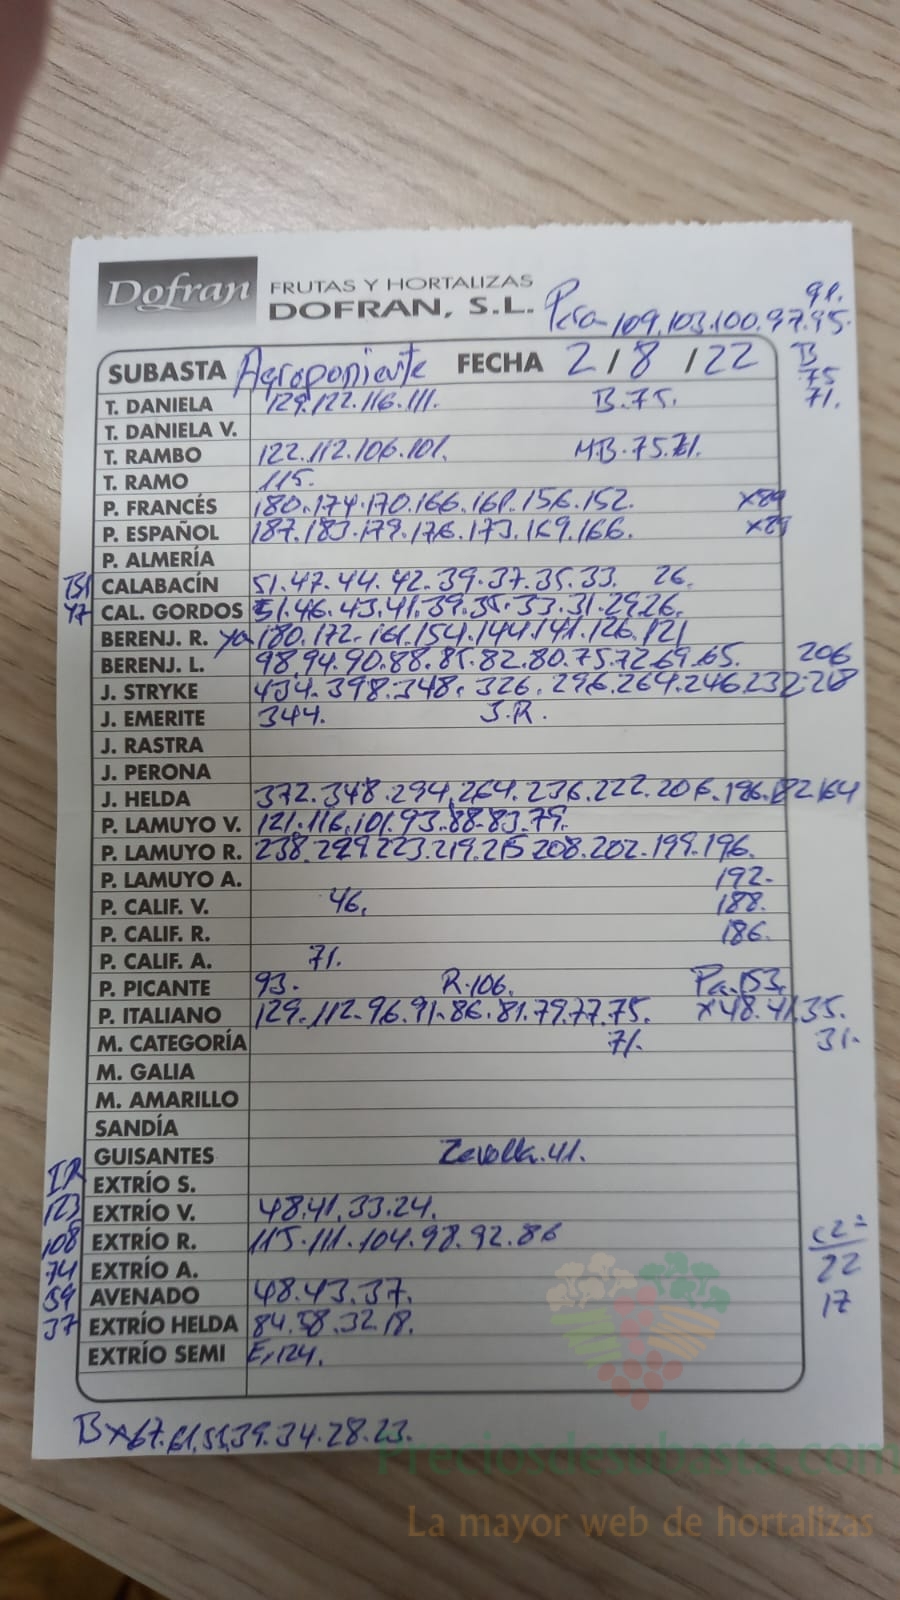 Dofran FRUTAS Y HORTALIZAS
DOFRAN, S.L. Pera 109.103.100.97.95.
91.
SUBASTA Agroponiente FECHA 2/8/22 B
75
T. DANIELA 129.122.116.111. B.75. 71.
T. DANIELA V.
T. RAMBO 122.112.106.101. MB.75.71.
T. RAMO 115.
P. FRANCÉS 180.174.170.166.161.156.152. x89
P. ESPAÑOL 187.183.179.176.173.169.166. x89
P. ALMERÍA
CALABACÍN 51.47.44.42.39.37.35.33. 26.
47 CAL. GORDOS 51.46.43.41.39.35.33.31.29.26.
BERENJ. R. 180.172.161.154.144.141.126.121
BERENJ. L. 98.94.90.88.85.82.80.75.72.69.65. 206
J. STRYKE 434.398.348.326.296.264.246.232.218
J. EMERITE 344. S.R.
J. RASTRA
J. PERONA
J. HELDA 372.348.294.264.236.222.206.196.182.164
P. LAMUYO V. 121.116.101.93.88.83.79.
P. LAMUYO R. 238.229.223.219.215 208.202.199.196.
P. LAMUYO A. 192.
P. CALIF. V. 46. 188.
P. CALIF. R. 186.
P. CALIF. A. 71.
P. PICANTE 93. R.106. Pa.153.
P. ITALIANO 129.112.96.91.86.81.79.77.75. x48.41.35.
M. CATEGORÍA 71. 31.
M. GALIA
M. AMARILLO
SANDÍA
GUISANTES Zevolla.41.
IR EXTRÍO S.
123 EXTRÍO V. 48.41.33.24.
108 EXTRÍO R. 115.111.104.98.92.86
74 EXTRÍO A. 22
59 AVENADO 48.43.37. 17
37 EXTRÍO HELDA 84.58.32.18.
EXTRÍO SEMI E.124.
Bx67.61.53.39.34.28.23.
Preciosdesubasta.com
La mayor web de hortalizas